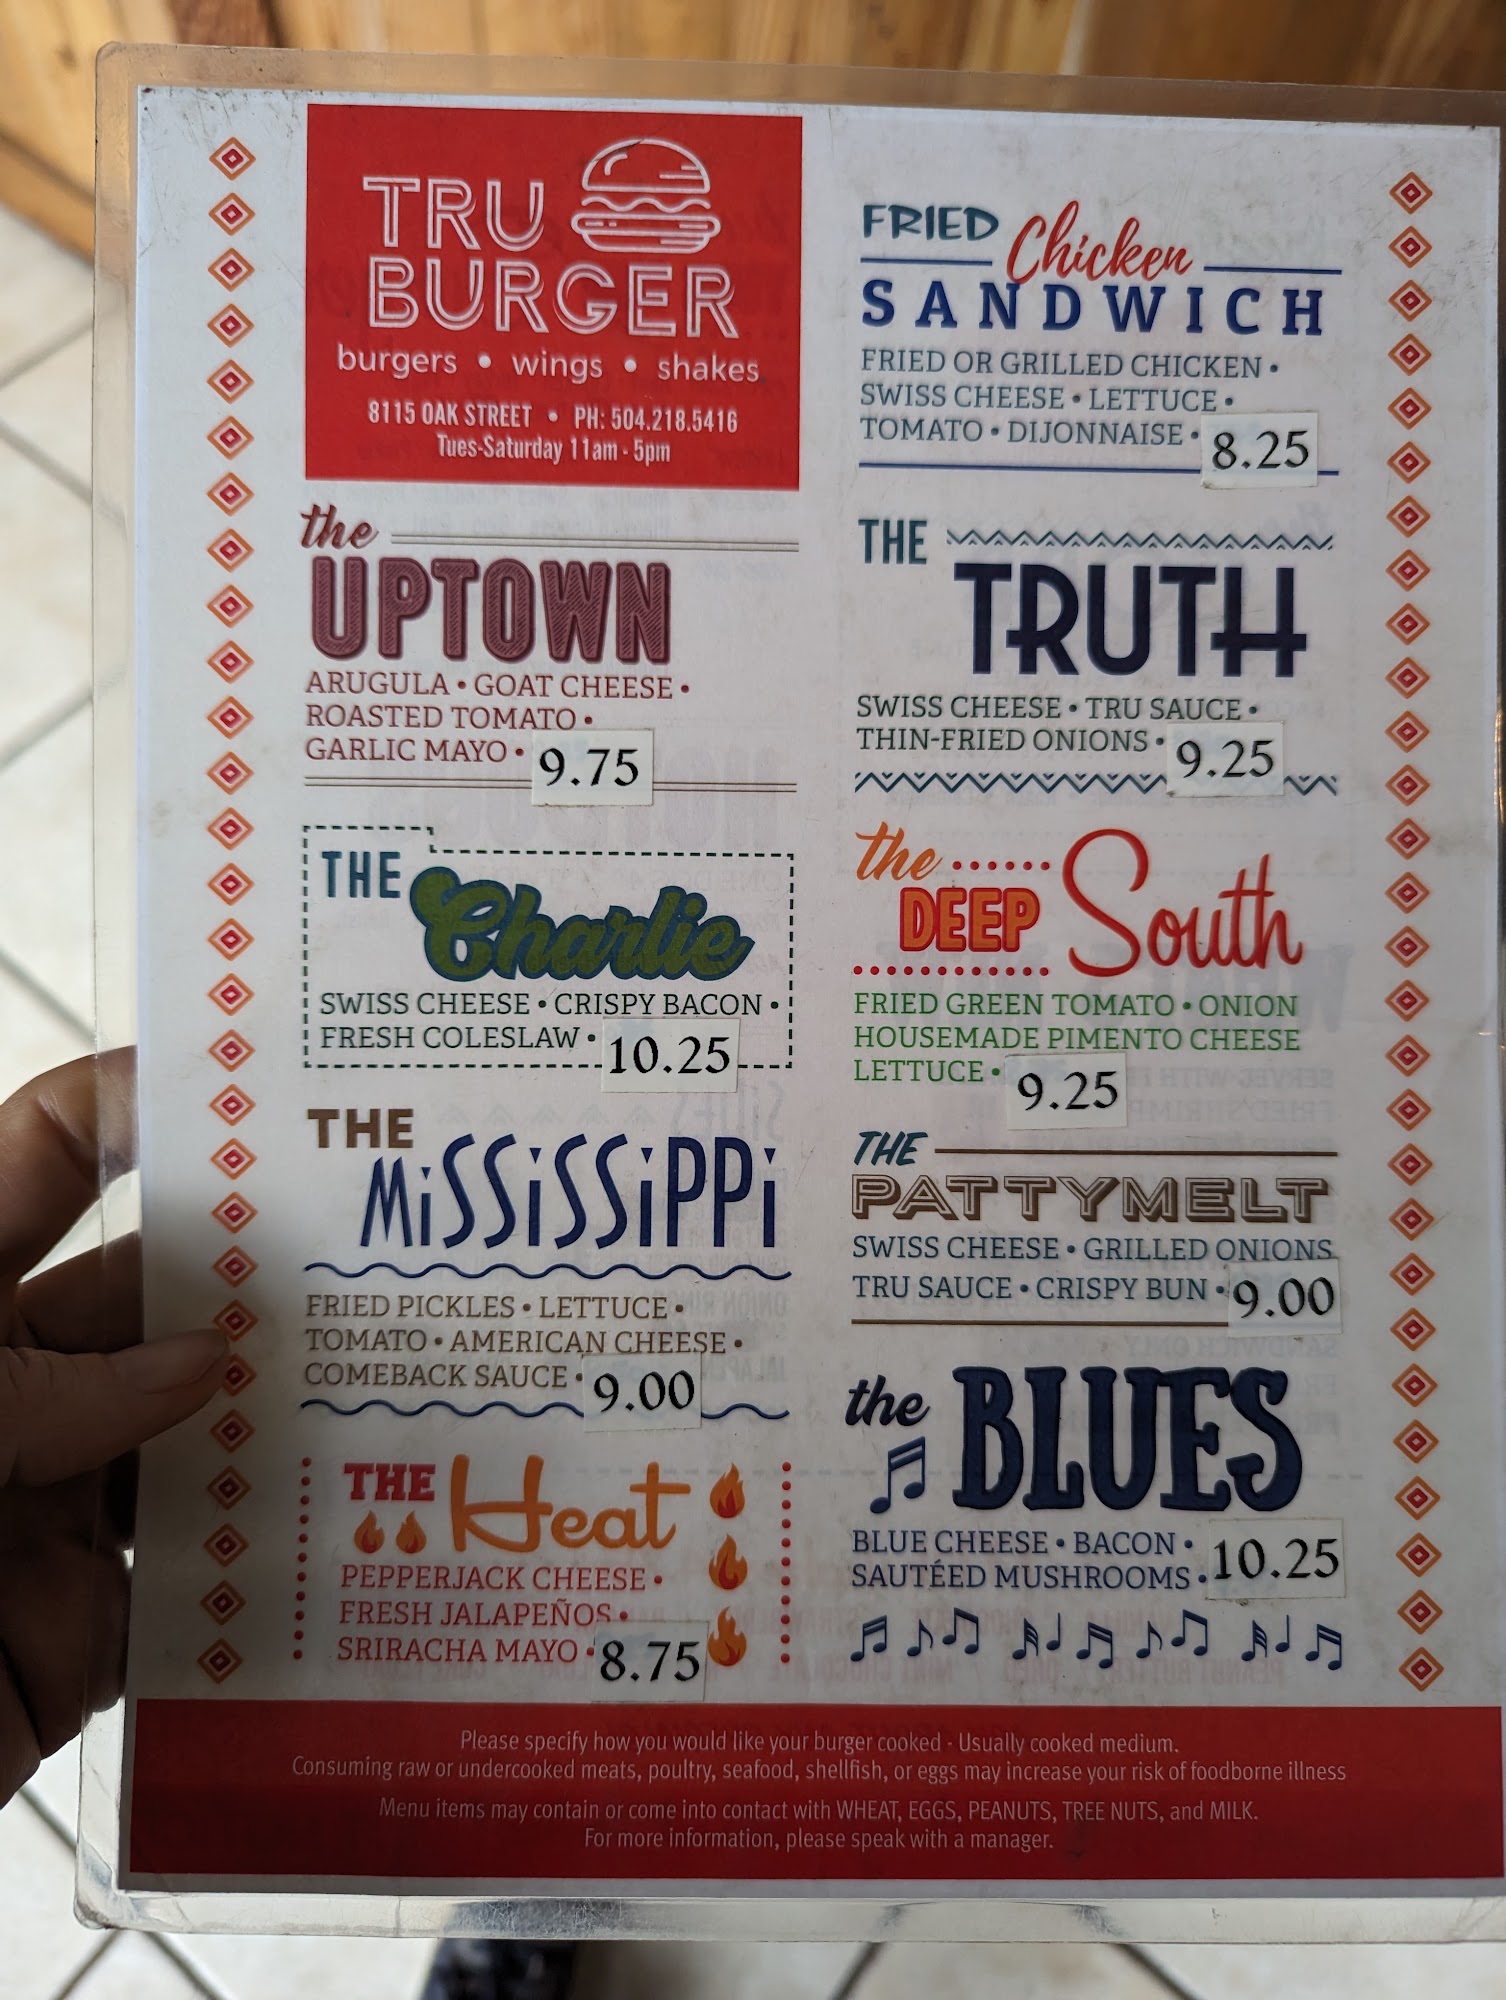 TRU
BURGER
burgers • wings • shakes
8115 OAK STREET • PH: 504.218.5416
Tues-Saturday 11am - 5pm
the
UPTOWN
ARUGULA • GOAT CHEESE •
ROASTED TOMATO •
GARLIC MAYO • 9.75
THE
Charlie
SWISS CHEESE • CRISPY BACON •
FRESH COLESLAW • 10.25
THE
MiSSiSSiPPi
FRIED PICKLES • LETTUCE •
TOMATO • AMERICAN CHEESE •
COMEBACK SAUCE • 9.00
THE Heat
PEPPERJACK CHEESE •
FRESH JALAPEÑOS •
SRIRACHA MAYO • 8.75
FRIED Chicken
SANDWICH
FRIED OR GRILLED CHICKEN •
SWISS CHEESE • LETTUCE •
TOMATO • DIJONNAISE • 8.25
THE
TRUTH
SWISS CHEESE • TRU SAUCE •
THIN-FRIED ONIONS • 9.25
the
DEEP South
FRIED GREEN TOMATO • ONION
HOUSEMADE PIMENTO CHEESE
LETTUCE • 9.25
THE
PATTYMELT
SWISS CHEESE • GRILLED ONIONS
TRU SAUCE • CRISPY BUN • 9.00
the BLUES
BLUE CHEESE • BACON •
SAUTÉED MUSHROOMS • 10.25
Please specify how you would like your burger cooked - Usually cooked medium.
Consuming raw or undercooked meats, poultry, seafood, shellfish, or eggs may increase your risk of foodborne illness
Menu items may contain or come into contact with WHEAT, EGGS, PEANUTS, TREE NUTS, and MILK.
For more information, please speak with a manager.